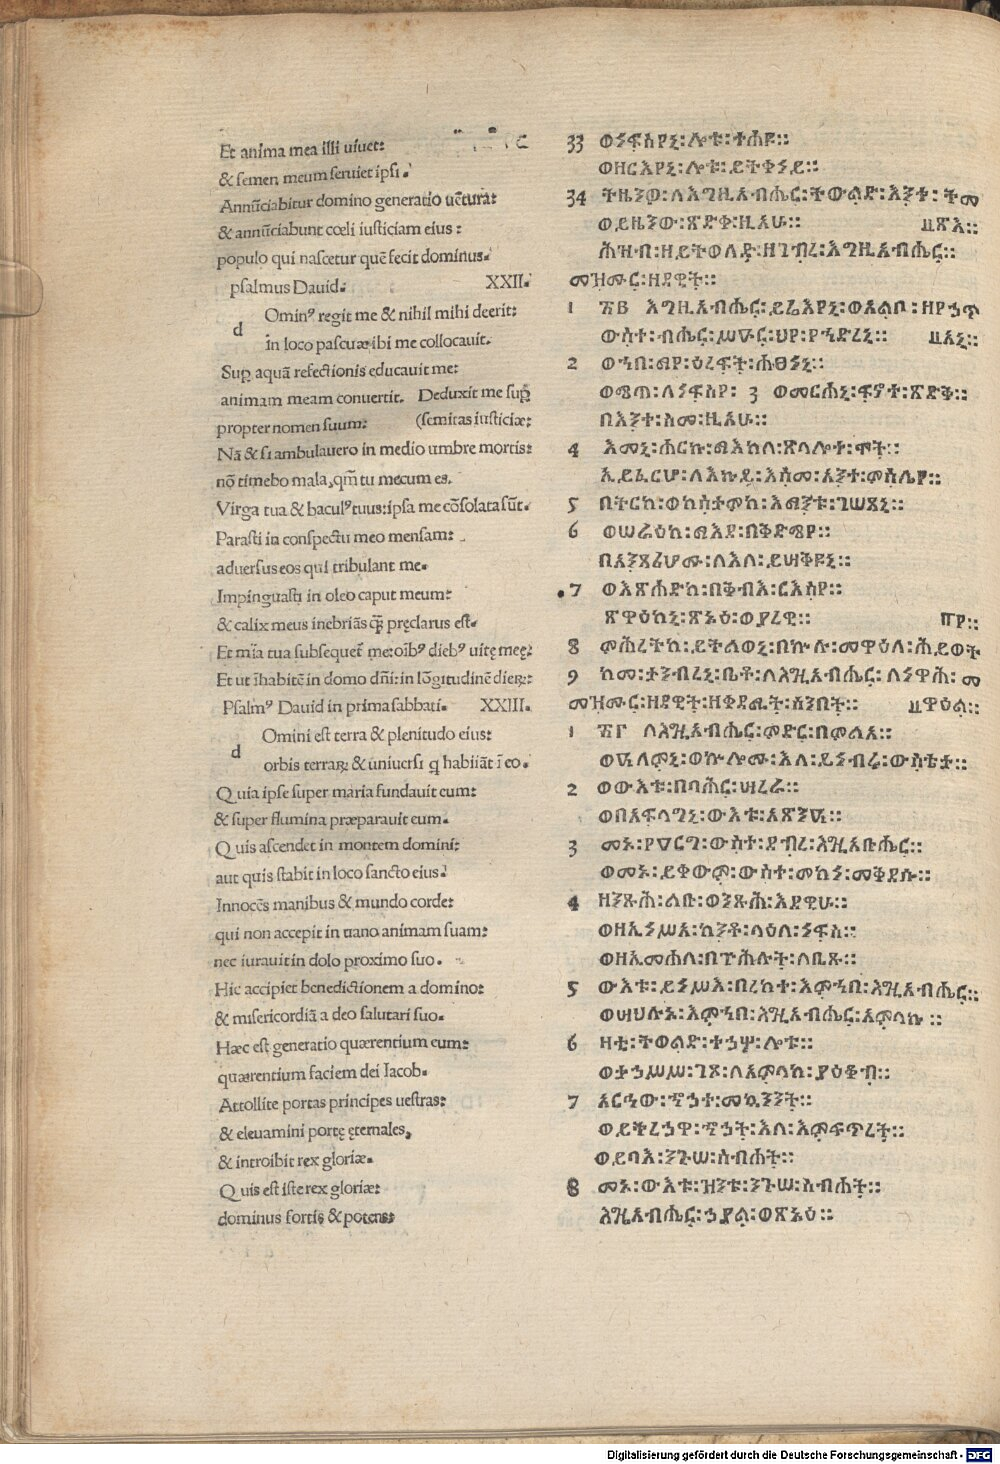 Et anima mea illi uiuet:
& semen meum seruiet ipsi.
Annũciabitur domino generatio uẽtura:
& annũciabunt cœli iusticiam eius:
populo qui nascetur quẽ fecit dominus.
psalmus Dauid. XXII.
Omin⁹ regit me & nihil mihi deerit:
d
in loco pascuæ ibi me collocauit.
Sup aquã refectionis educauit me:
animam meam conuertit. Deduxit me sup
propter nomen suum: (semitas iusticiæ:
Nã & si ambulauero in medio umbre mortis:
nõ timebo mala, qm̃ tu mecum es.
Virga tua & bacul⁹ tuus: ipsa me cõsolata sũt.
Parasti in conspectu meo mensam:
aduersus eos qui tribulant me.
Impinguasti in oleo caput meum:
& calix meus inebriãs q̃ pręclarus est.
Et mĩa tua subsequet̃ me: oĩb⁹ dieb⁹ uitę meę:
Et ut ĩhabitẽ in domo dñi: in lõgitudinẽ dierꝝ:
Psalm⁹ Dauid in prima sabbati. XXIII.
Omini est terra & plenitudo eius:
d
orbis terrarꝝ & uniuersi q habitãt ĩ eo.
Quia ipse super maria fundauit eum:
& super flumina præparauit eum.
Quis ascendet in montem domini:
aut quis stabit in loco sancto eius:
Innocẽs manibus & mundo corde:
qui non accepit in uano animam suam:
nec iurauit in dolo proximo suo.
Hic accipiet benedictionem a domino:
& misericordiã a deo salutari suo.
Hæc est generatio quærentium eum:
quærentium faciem dei Iacob.
Attollite portas principes uestras:
& eleuamini portę ęternales,
& introibit rex gloriæ.
Quis est iste rex gloriæ:
dominus fortis & potens:
33 ወነፍስየኒ፡ሎቱ፡ተሐዩ፡፡
ወዘርእየኒ፡ሎቱ፡ይትቀነይ፡፡
34 ትዜንዎ፡ለእግዚአብሔር፡ትውልድ፡እንተ፡ትመ
ወይዜንው፡ጽድቀ፡ዚአሁ፡፡ ጽእ፡፡
ሕዝብ፡ዘይትወለድ፡ዘገብረ፡እግዚአብሔር፡፡
መዝሙር፡ዘዳዊት፡፡
1 ፳፪ እግዚአብሔር፡ይሬእየኒ፡ወአልቦ፡ዘየኃጥ
ውስተ፡ብሔር፡ሥዑር፡ህየ፡የኀድረኒ፡፡ አኒ፡፡
2 ወኀበ፡ማየ፡ዕረፍት፡ሐፀነኒ፡፡
ወሜጣ፡ለነፍስየ፡ 3 ወመርሐኒ፡ፍኖተ፡ጽድቅ፡፡
በእንተ፡ስመ፡ዚአሁ፡፡
4 እመኒ፡ሖርኩ፡ማእከለ፡ጽላሎተ፡ሞት፡፡
ኢይፈርህ፡ለእኩይ፡እስመ፡አንተ፡ምስሌየ፡፡
5 በትርከ፡ወቀስታምከ፡እማንቱ፡ገሠጻኒ፡፡
6 ወሠራዕከ፡ማእደ፡በቅድሜየ፡፡
በአንጻሪሆሙ፡ለእለ፡ይሣቅዩኒ፡፡
7 ወአጽሐድከ፡በቅብእ፡ርእስየ፡፡
ጽዋዕከኒ፡ጽኑዕ፡ወያረዊ፡፡
8 ምሕረትከ፡ይትልወኒ፡በኩሉ፡መዋዕለ፡ሕይወት
9 ከመ፡ታንብረኒ፡ቤቶ፡ለእግዚአብሔር፡ለነዋሕ፡መ
መዝሙር፡ዘዳዊት፡ዘቀዳሚት፡ሰንበት፡፡ ዋዕል፡፡
1 ፳፫ ለእግዚአብሔር፡ምድር፡በምልአ፡፡
ወዓለምኒ፡ወኩሎሙ፡እለ፡ይነብሩ፡ውስቴታ፡፡
2 ወውእቱ፡በባሕር፡ሣረራ፡፡
ወበአፍላግኒ፡ውእቱ፡አጽንዓ፡፡
3 መኑ፡የዓርግ፡ውስተ፡ደብረ፡እግዚአብሔር፡፡
ወመኑ፡ይቀውም፡ውስተ፡መከነ፡መቅደሱ፡፡
4 ዘንጹሕ፡ልቡ፡ወንጹሕ፡እደዊሁ፡፡
ወዘኢነሥአ፡ከንቶ፡ላዕለ፡ነፍሱ፡፡
ወዘኢመሐለ፡በጕሕሉት፡ለቢጹ፡፡
5 ውእቱ፡ይነሥእ፡በረከተ፡እምኀበ፡እግዚአብሔር፡፡
ወሣህሉኒ፡እምኀበ፡እግዚአብሔር፡አምላኩ፡፡
6 ዛቲ፡ትውልድ፡ተኃሦ፡ሎቱ፡፡
ወተኃሥሥ፡ገጸ፡ለአምላከ፡ያዕቆብ፡፡
7 አርኅው፡ኆኃተ፡መኳንንት፡፡
ወይትረኃዋ፡ኆኃት፡እለ፡እምፍጥረት፡፡
ወይባእ፡ንጉሠ፡ስብሐት፡፡
8 መኑ፡ውእቱ፡ዝንቱ፡ንጉሠ፡ስብሐት፡፡
እግዚአብሔር፡ኃያል፡ወጽኑዕ፡፡
Digitalisierung gefördert durch die Deutsche Forschungsgemeinschaft - DFG